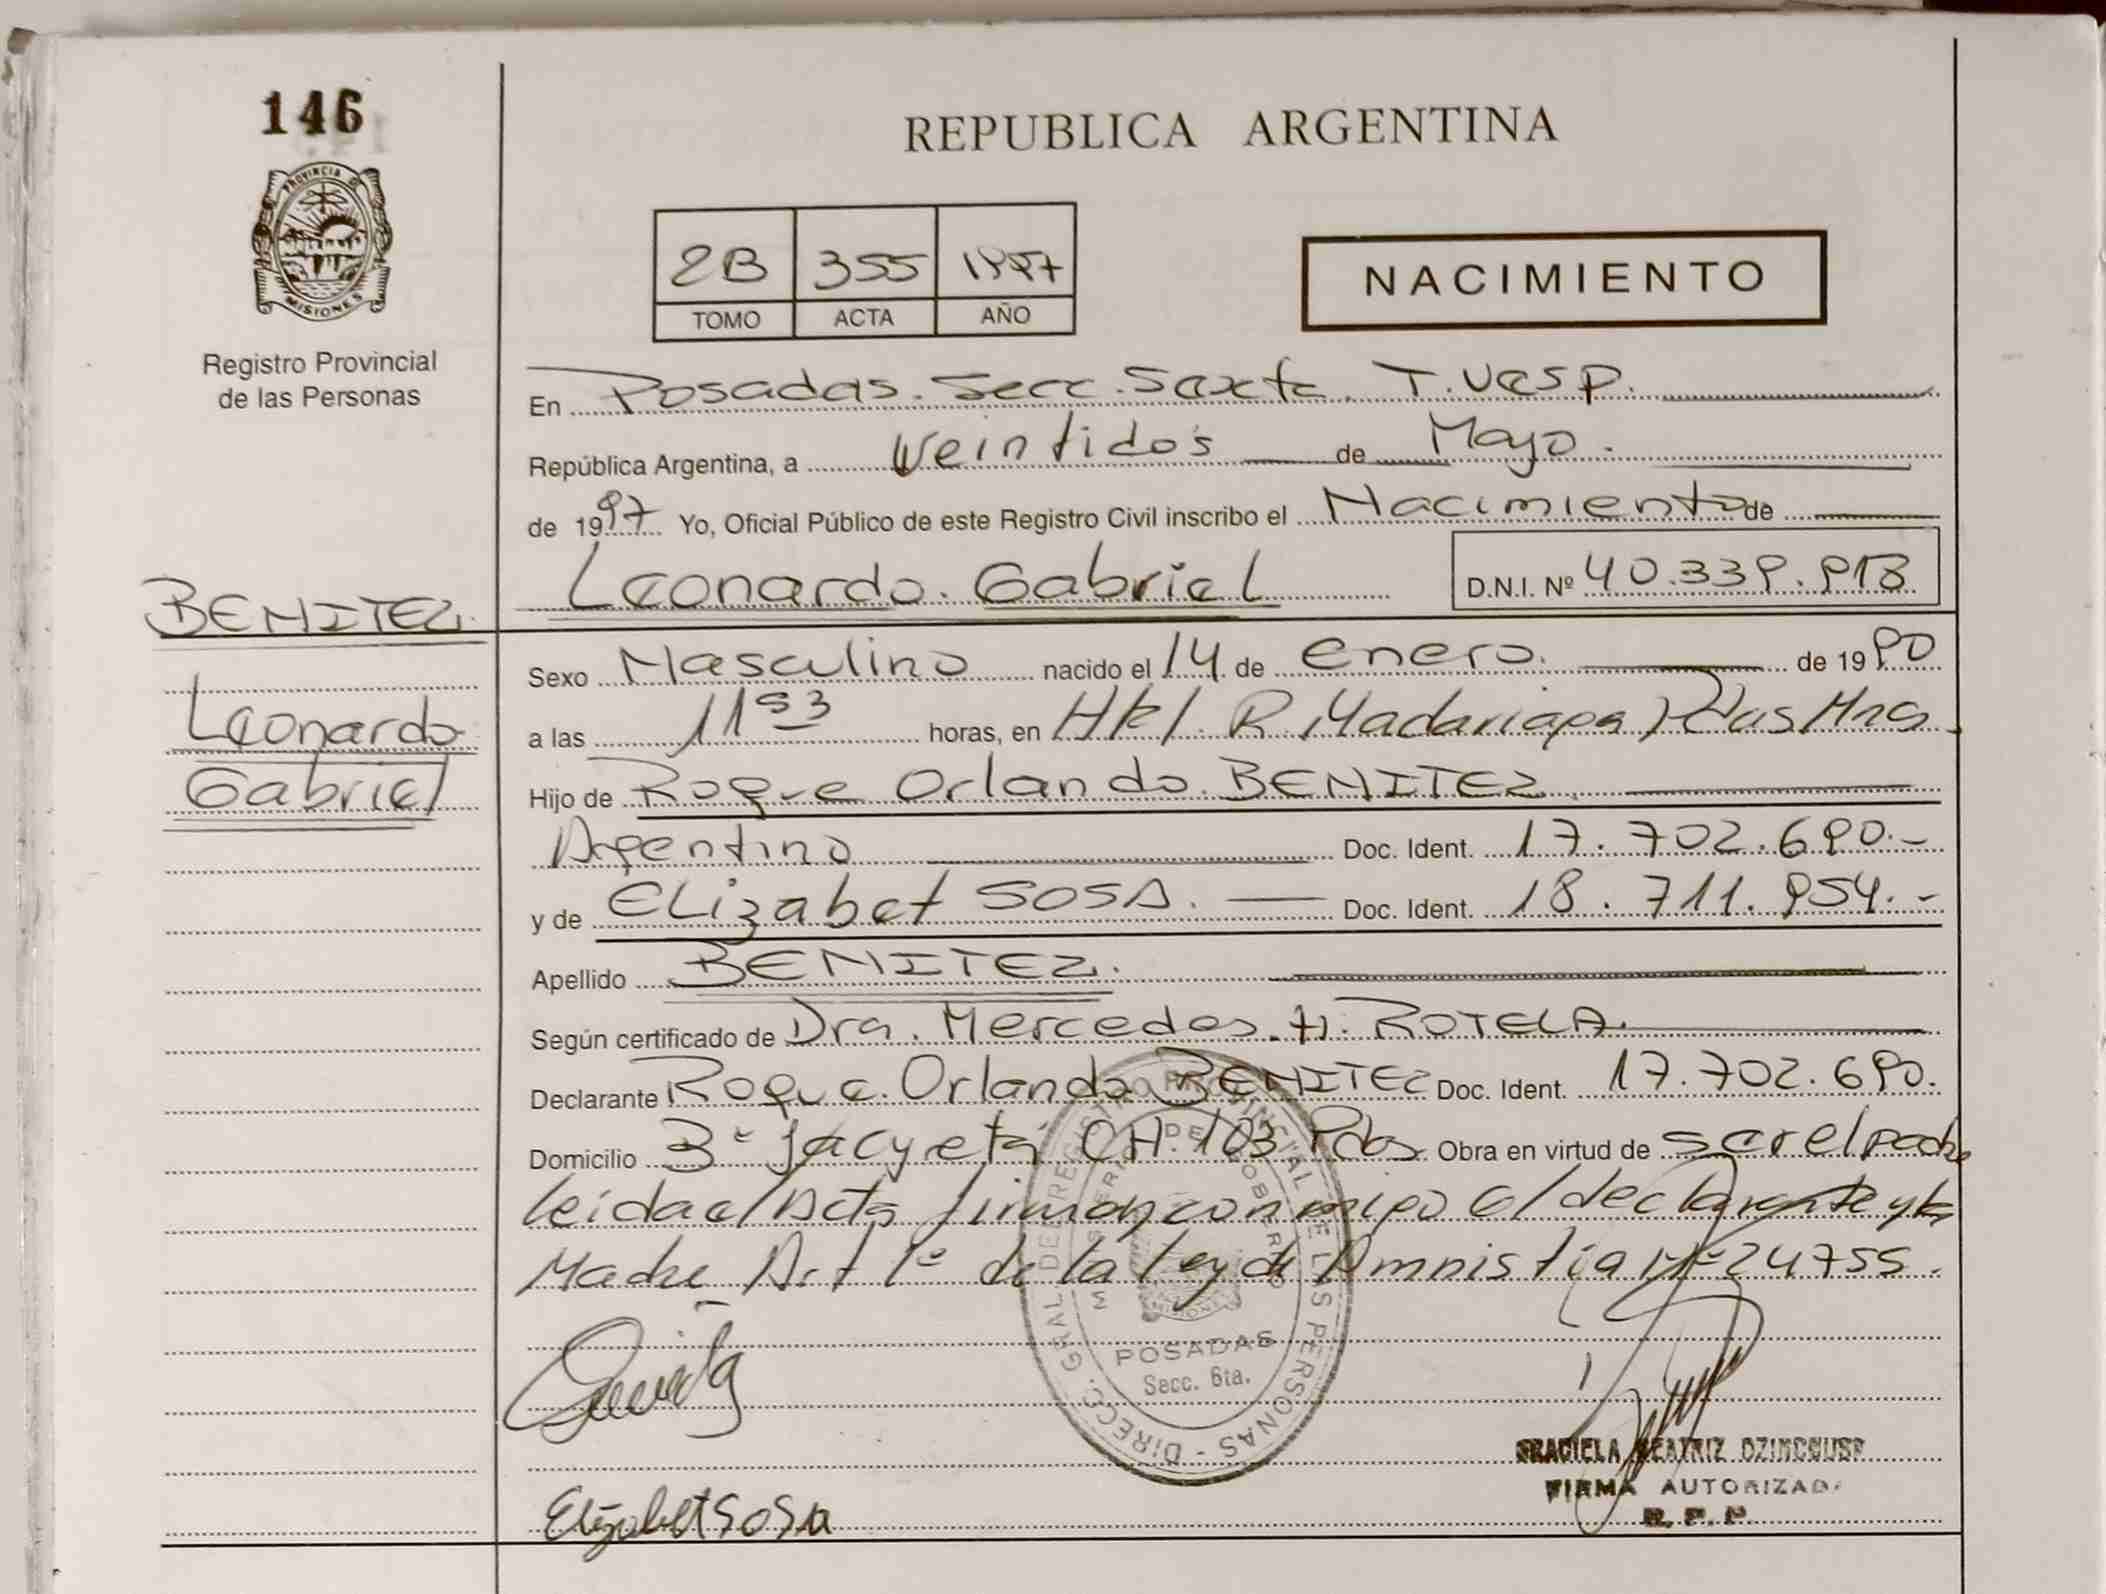 146
REPUBLICA ARGENTINA
PROVINCIA DE
MISIONES
Registro Provincial
de las Personas
2B 355 1997
TOMO ACTA AÑO
NACIMIENTO
En Posadas. Secc. Sexta. T. Vesp.
República Argentina, a Veintidós de Mayo.
de 1997 Yo, Oficial Público de este Registro Civil inscribo el Nacimiento de
Leonardo. Gabriel D.N.I. Nº 40.339.913
BENITEZ.
Leonardo
Gabriel
Sexo Masculino nacido el 14 de enero. de 1990
a las 11 53 horas, en Htel. R. Madariaga Pdas Mnes.
Hijo de Roque Orlando. BENITEZ.
Argentino Doc. Ident. 17.702.690.-
y de Elizabet SOSA. Doc. Ident. 18.711.954.-
Apellido BENITEZ.
Según certificado de Dra. Mercedes. H. ROTELA.
Declarante Roque. Orlando BENITEZ Doc. Ident. 17.702.690.
Domicilio Bº Yacyretá CH. 103 Pdas Obra en virtud de ser el padre
leida el Acta firman conmigo el declarante y la
Madre Art 1º de la Ley de Amnistía Nº 24755.
DIRECC. GRAL. DEL REGISTRO PROVINCIAL DE LAS PERSONAS
MINISTERIO DE GOBIERNO
MISIONES
POSADAS
Secc. 6ta.
Elizabet SOSA
GRACIELA BEATRIZ
FIRMA AUTORIZADA
R. P. P.